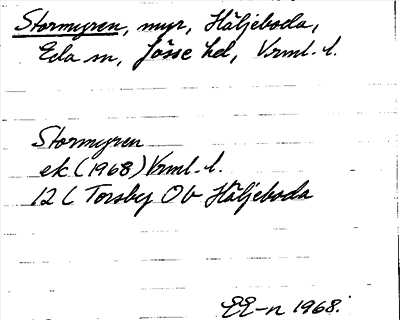 Stormyren, myr, Häljeboda,
Eda sn, Jösse hd, Vrml. l.
Stormyren
ek (1968) Vrml. l.
12 C Torsby OV Häljeboda
EE-n 1968.